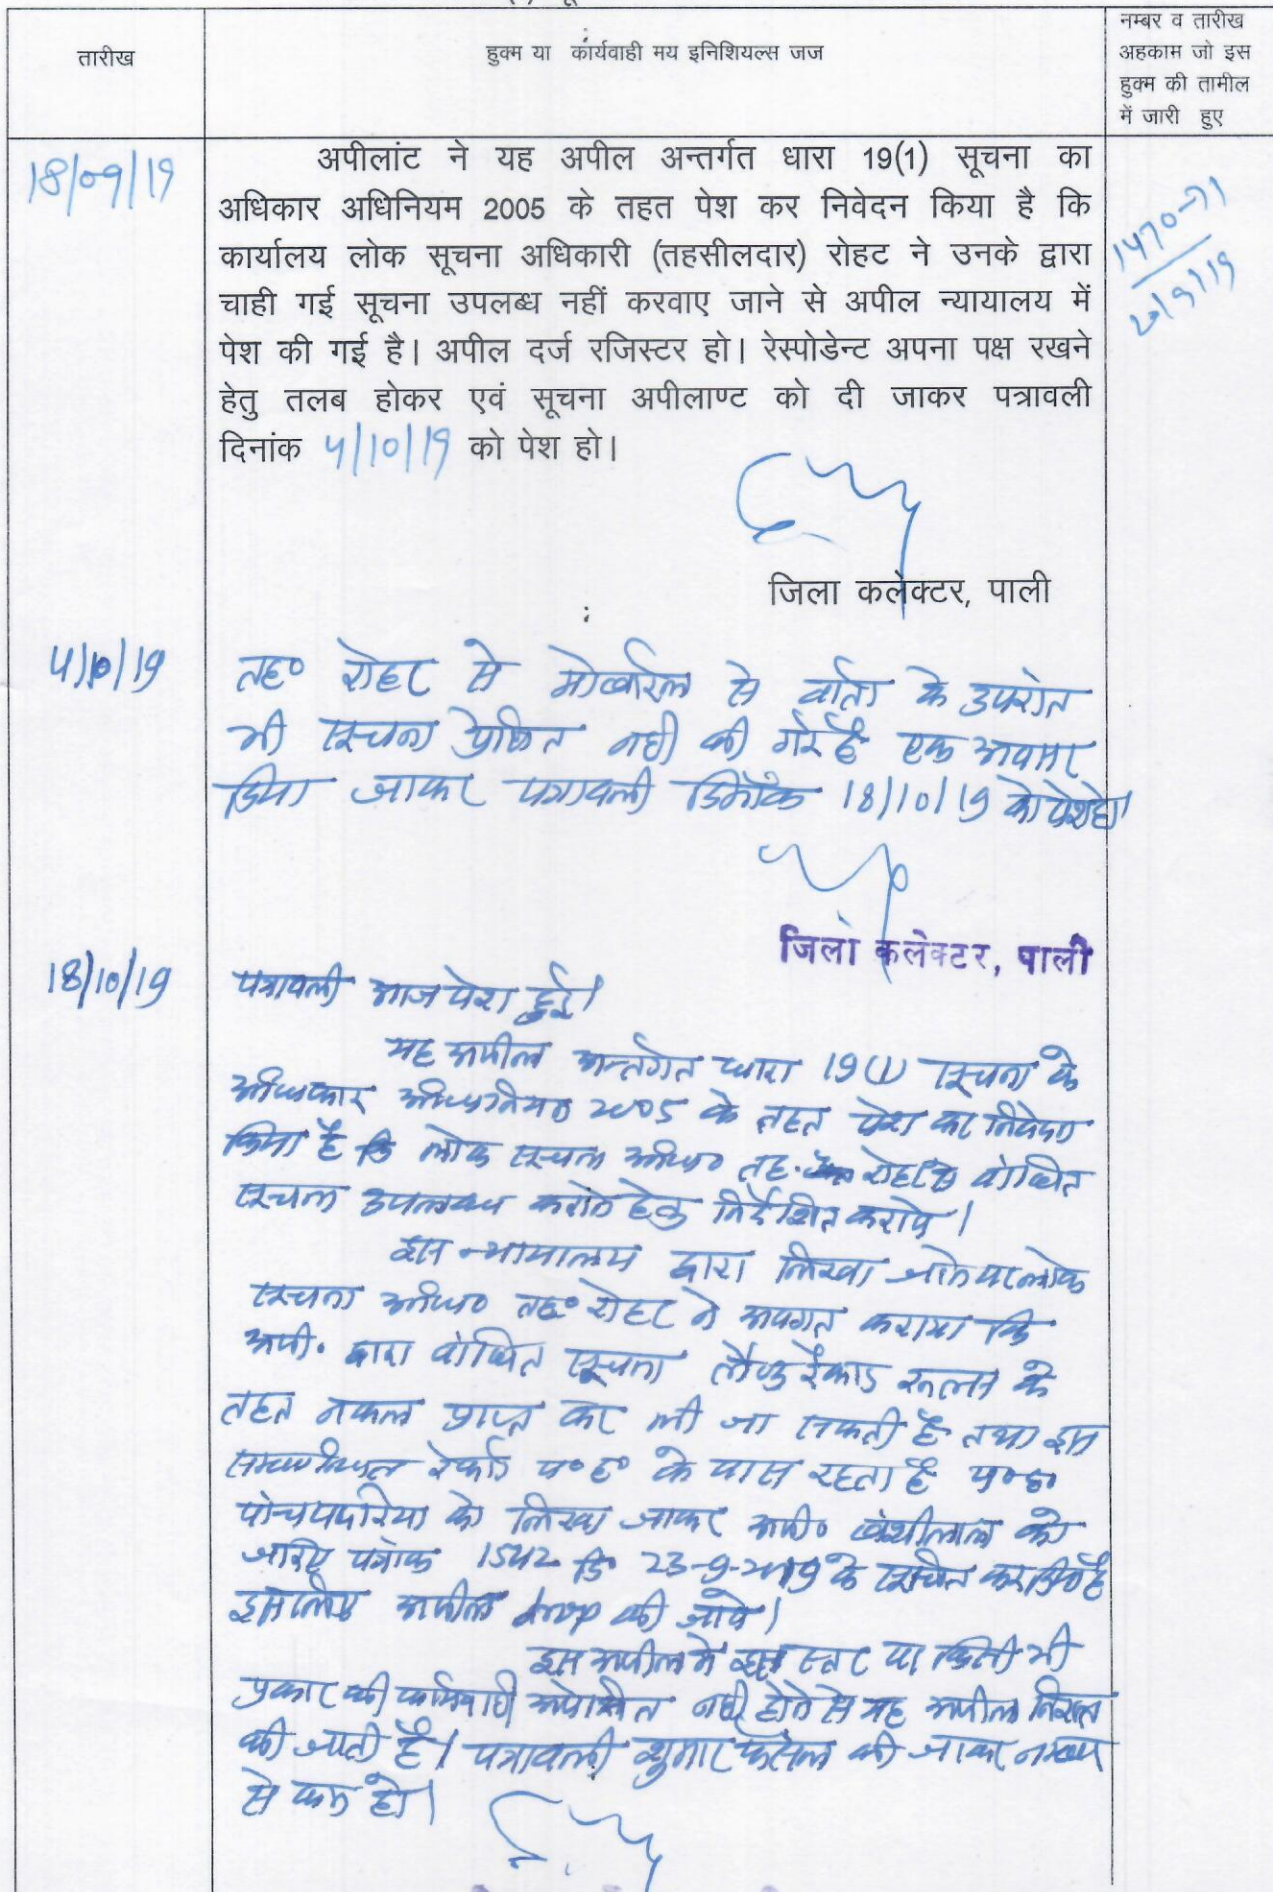 तारीख
हुक्म या कार्यवाही मय इनिशियल्स जज
नम्बर व तारीख
अहकाम जो इस
हुक्म की तामील
में जारी हुए
18/09/19
अपीलांट ने यह अपील अन्तर्गत धारा 19(1) सूचना का
अधिकार अधिनियम 2005 के तहत पेश कर निवेदन किया है कि
कार्यालय लोक सूचना अधिकारी (तहसीलदार) रोहट ने उनके द्वारा
चाही गई सूचना उपलब्ध नहीं करवाए जाने से अपील न्यायालय में
पेश की गई है। अपील दर्ज रजिस्टर हो। रेस्पोडेन्ट अपना पक्ष रखने
हेतु तलब होकर एवं सूचना अपीलाण्ट को दी जाकर पत्रावली
दिनांक 4/10/19 को पेश हो।
1470-71
जिला कलेक्टर, पाली
4/10/19
तह० रोहट से मोबाईल से वार्ता के उपरांत
भी सूचना प्रेषित नही की गई है एक अवसर
दिया जाकर पत्रावली दिनांक 18/10/19 को पेश हो।
जिला कलेक्टर, पाली
18/10/19
पत्रावली आज पेश हुई।
यह अपील अन्तर्गत धारा 19(1) सूचना के
अधिकार अधिनियम 2005 के तहत पेश कर निवेदन
किया है कि लोक सूचना अधि० तह. रोहट वांछित
सूचना उपलब्ध कराने हेतु निर्देशित करावे।
इस न्यायालय द्वारा लिखा जाने पर लोक
सूचना अधि० तह० रोहट ने अवगत कराया कि
अपी. द्वारा वांछित सूचना लैण्ड रेकार्ड रूल्स के
तहत नकल प्राप्त कर ली जा सकती है तथा इस
सम्बन्धित रेकॉर्ड प०ह० के पास रहता है प०ह०
पांचपदरिया को लिखा जाकर अपी० बंशीलाल को
जरिए पत्रांक 1542 दि 23-9-2019 के सूचित कर दिया है
इसलिए अपील drop की जावे।
इस अपील में इस स्तर पर किसी भी
प्रकार की कार्यवाही अपेक्षित नही होने से यह अपील निरस्त
की जाती है। पत्रावली शुमार फैसल की जाकर नम्बर
से कम हो।